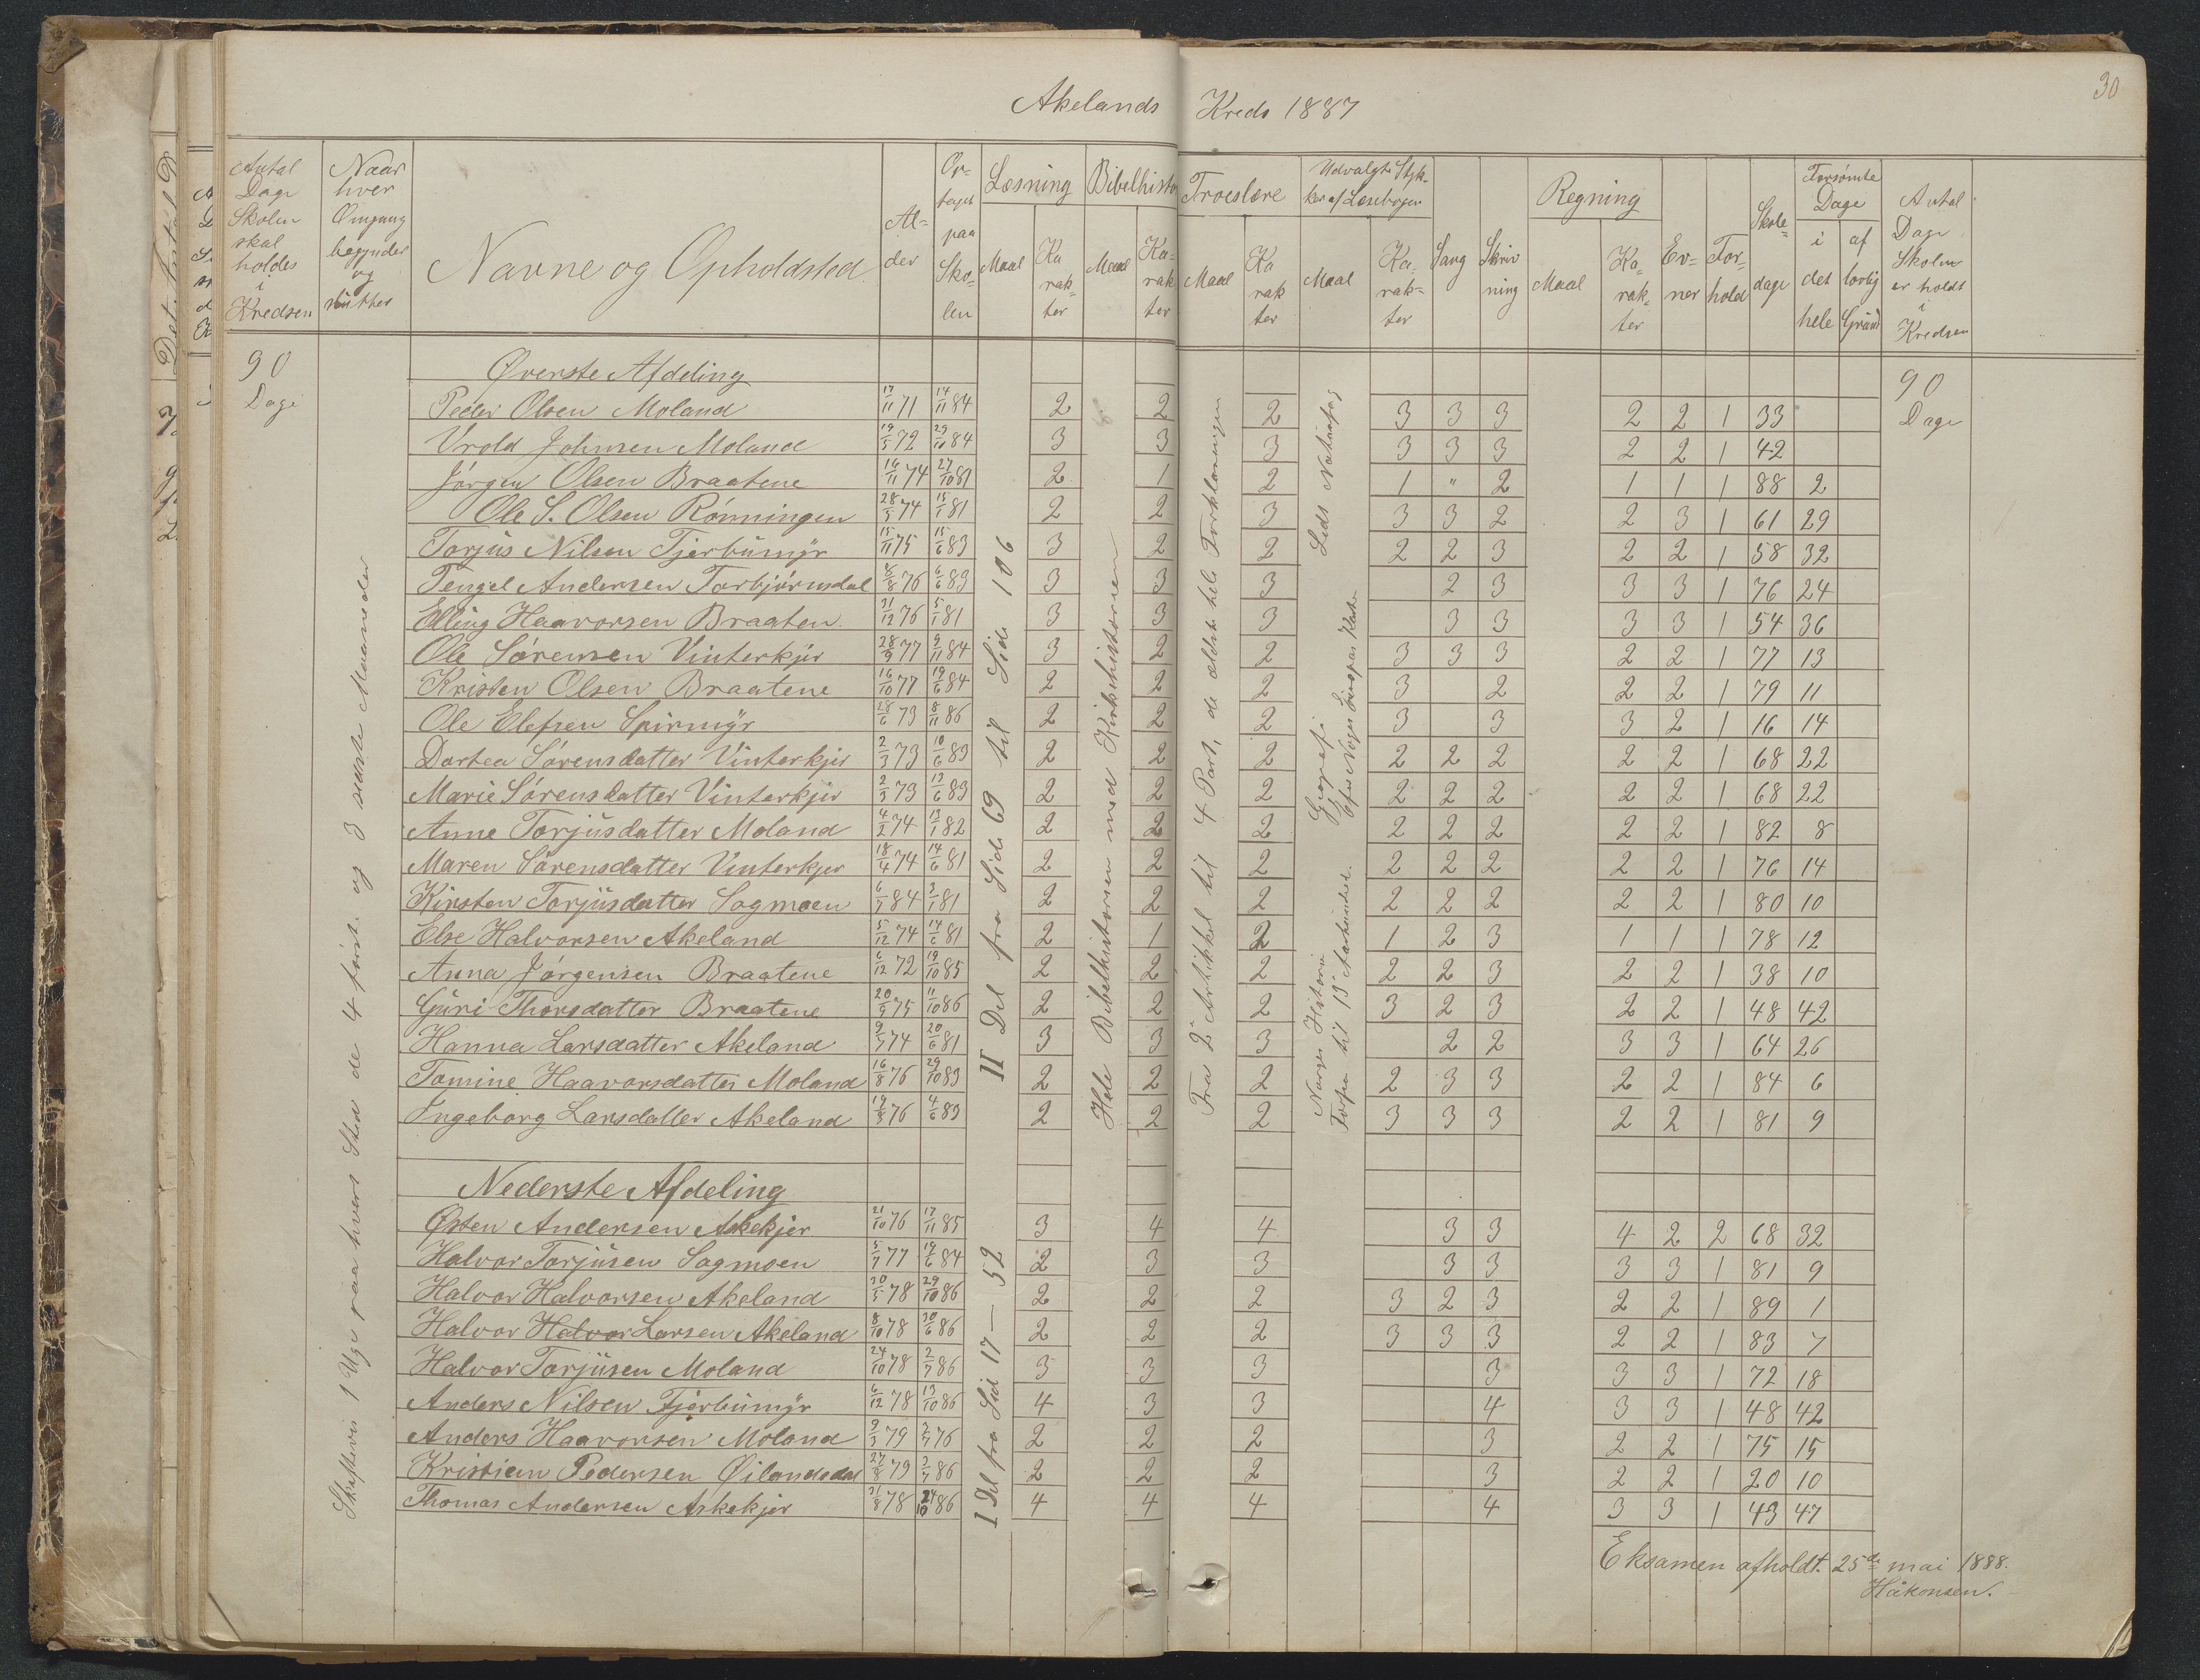 30
Akelands Kreds 1887
Antal Dage Skolen skal holdes i Kredsen
Naar hver Omgang begynder og slutter
Navne og Opholdsted
Alder
Optaget paa Skolen
Læsning Maal Karakter
Bibelhisto Maal Karakter
Troeslære Maal Karakter
Udvalgte Stykker af Læsebogen Maal Karakter
Sang
Skrivning
Regning Maal Karakter
Evner
Forhold
Skoledage
Forsømte Dage i det hele af lovlig Grund
Antal Dage Skolen er holdt i Kredsen
90 Dage
Skiftevis 1 Uge paa hvert Sted de 4 første og 3 sidste Maaneder
II Del fra Side 69 til Side 106
Hele Bibelhistorien med Kirkehistorien
Fra 2 Artikkel til 4 Part, de ældste hele Forklaringen
Norges Historie
Geografi
Leds Naturfag
I Del fra Sid 17 — 52
90 Dage
Øverste Afdeling
Peder Olsen Moland 17/11 71 14/11 84 2 2 2 3 3 3 2 2 1 33
Vrold Johnsen Moland 19/5 72 29/10 84 3 3 3 3 3 3 2 2 1 42
Jörgen Olsen Braatene 16/11 74 27/10 81 2 1 2 1 " 2 1 1 1 88 2
Ole S. Olsen Rönningen 28/5 74 15/1 81 2 2 3 3 3 2 2 3 1 61 29
Torjus Nilsen Tjerbumyr 15/11 75 15/6 83 3 2 2 2 2 3 2 2 1 58 32
Tengel Andersen Torbjörnsdal 8/8 76 6/6 83 3 3 3 2 3 3 3 1 76 24
Elling Haavorsen Braaten 31/12 76 5/1 81 3 3 3 3 3 3 3 1 54 36
Ole Sörensen Vinterkjer 28/9 77 9/11 84 3 2 2 3 3 3 2 2 1 77 13
Kristen Olsen Braatene 16/10 77 19/6 84 2 2 2 3 2 2 2 1 79 11
Ole Elefsen Spirmyr 28/6 73 8/11 86 2 2 2 3 3 3 2 1 16 14
Dortea Sörensdatter Vinterkjer 2/3 73 10/6 83 2 2 2 2 2 2 2 2 1 68 22
Marie Sörensdatter Vinterkjer 2/3 73 13/6 83 2 2 2 2 2 2 2 2 1 68 22
Anne Torjusdatter Moland 4/2 74 13/1 82 2 2 2 2 2 2 2 2 1 82 8
Maren Sörensdatter Vinterkjer 18/4 74 14/6 81 2 2 2 2 2 2 2 2 1 76 14
Kirsten Torjusdatter Sagmoen 6/7 84 3/1 81 2 2 2 2 2 2 2 2 1 80 10
Else Halvorsen Akeland 5/12 74 14/6 81 2 1 2 1 2 3 1 1 1 78 12
Anna Jörgensen Braatene 6/12 72 19/10 85 2 2 2 2 2 3 2 2 1 38 10
Guri Thorsdatter Braatene 20/9 75 11/10 86 2 2 2 3 2 3 2 2 1 48 42
Hanna Larsdatter Akeland 9/7 74 20/6 81 3 3 3 2 2 3 3 1 64 26
Tomine Haavorsdatter Moland 16/8 76 29/10 83 2 2 2 2 3 3 2 2 1 84 6
Ingeborg Larsdatter Akeland 19/8 76 4/6 83 2 2 2 3 3 3 2 2 1 81 9
Nederste Afdeling
Østen Andersen Askekjer 21/10 76 17/11 85 3 4 4 3 3 4 2 2 68 32
Halvor Torjusen Sagmoen 5/7 77 19/6 84 2 3 3 3 3 3 3 1 81 9
Halvor Halvorsen Akeland 30/5 78 29/10 86 2 2 2 3 2 3 2 2 1 89 1
Halvor Halvor Larsen Akeland 8/10 78 30/6 86 2 2 2 3 3 3 2 2 1 83 7
Halvor Torjusen Moland 24/10 78 2/7 86 3 3 3 3 3 3 1 72 18
Anders Nilsen Tjerbumyr 6/12 78 13/10 86 4 3 3 4 3 3 1 48 42
Anders Haavorsen Moland 9/3 79 2/7 76 2 2 2 3 2 2 1 75 15
Kristian Pedersen Øilandsdal 27/8 79 3/7 86 2 2 2 3 2 2 1 20 10
Thomas Andersen Askekjer 31/8 78 24/10 86 4 4 4 4 3 3 1 43 47
Eksamen afholdt 25de mai 1888.
Håkonsen.